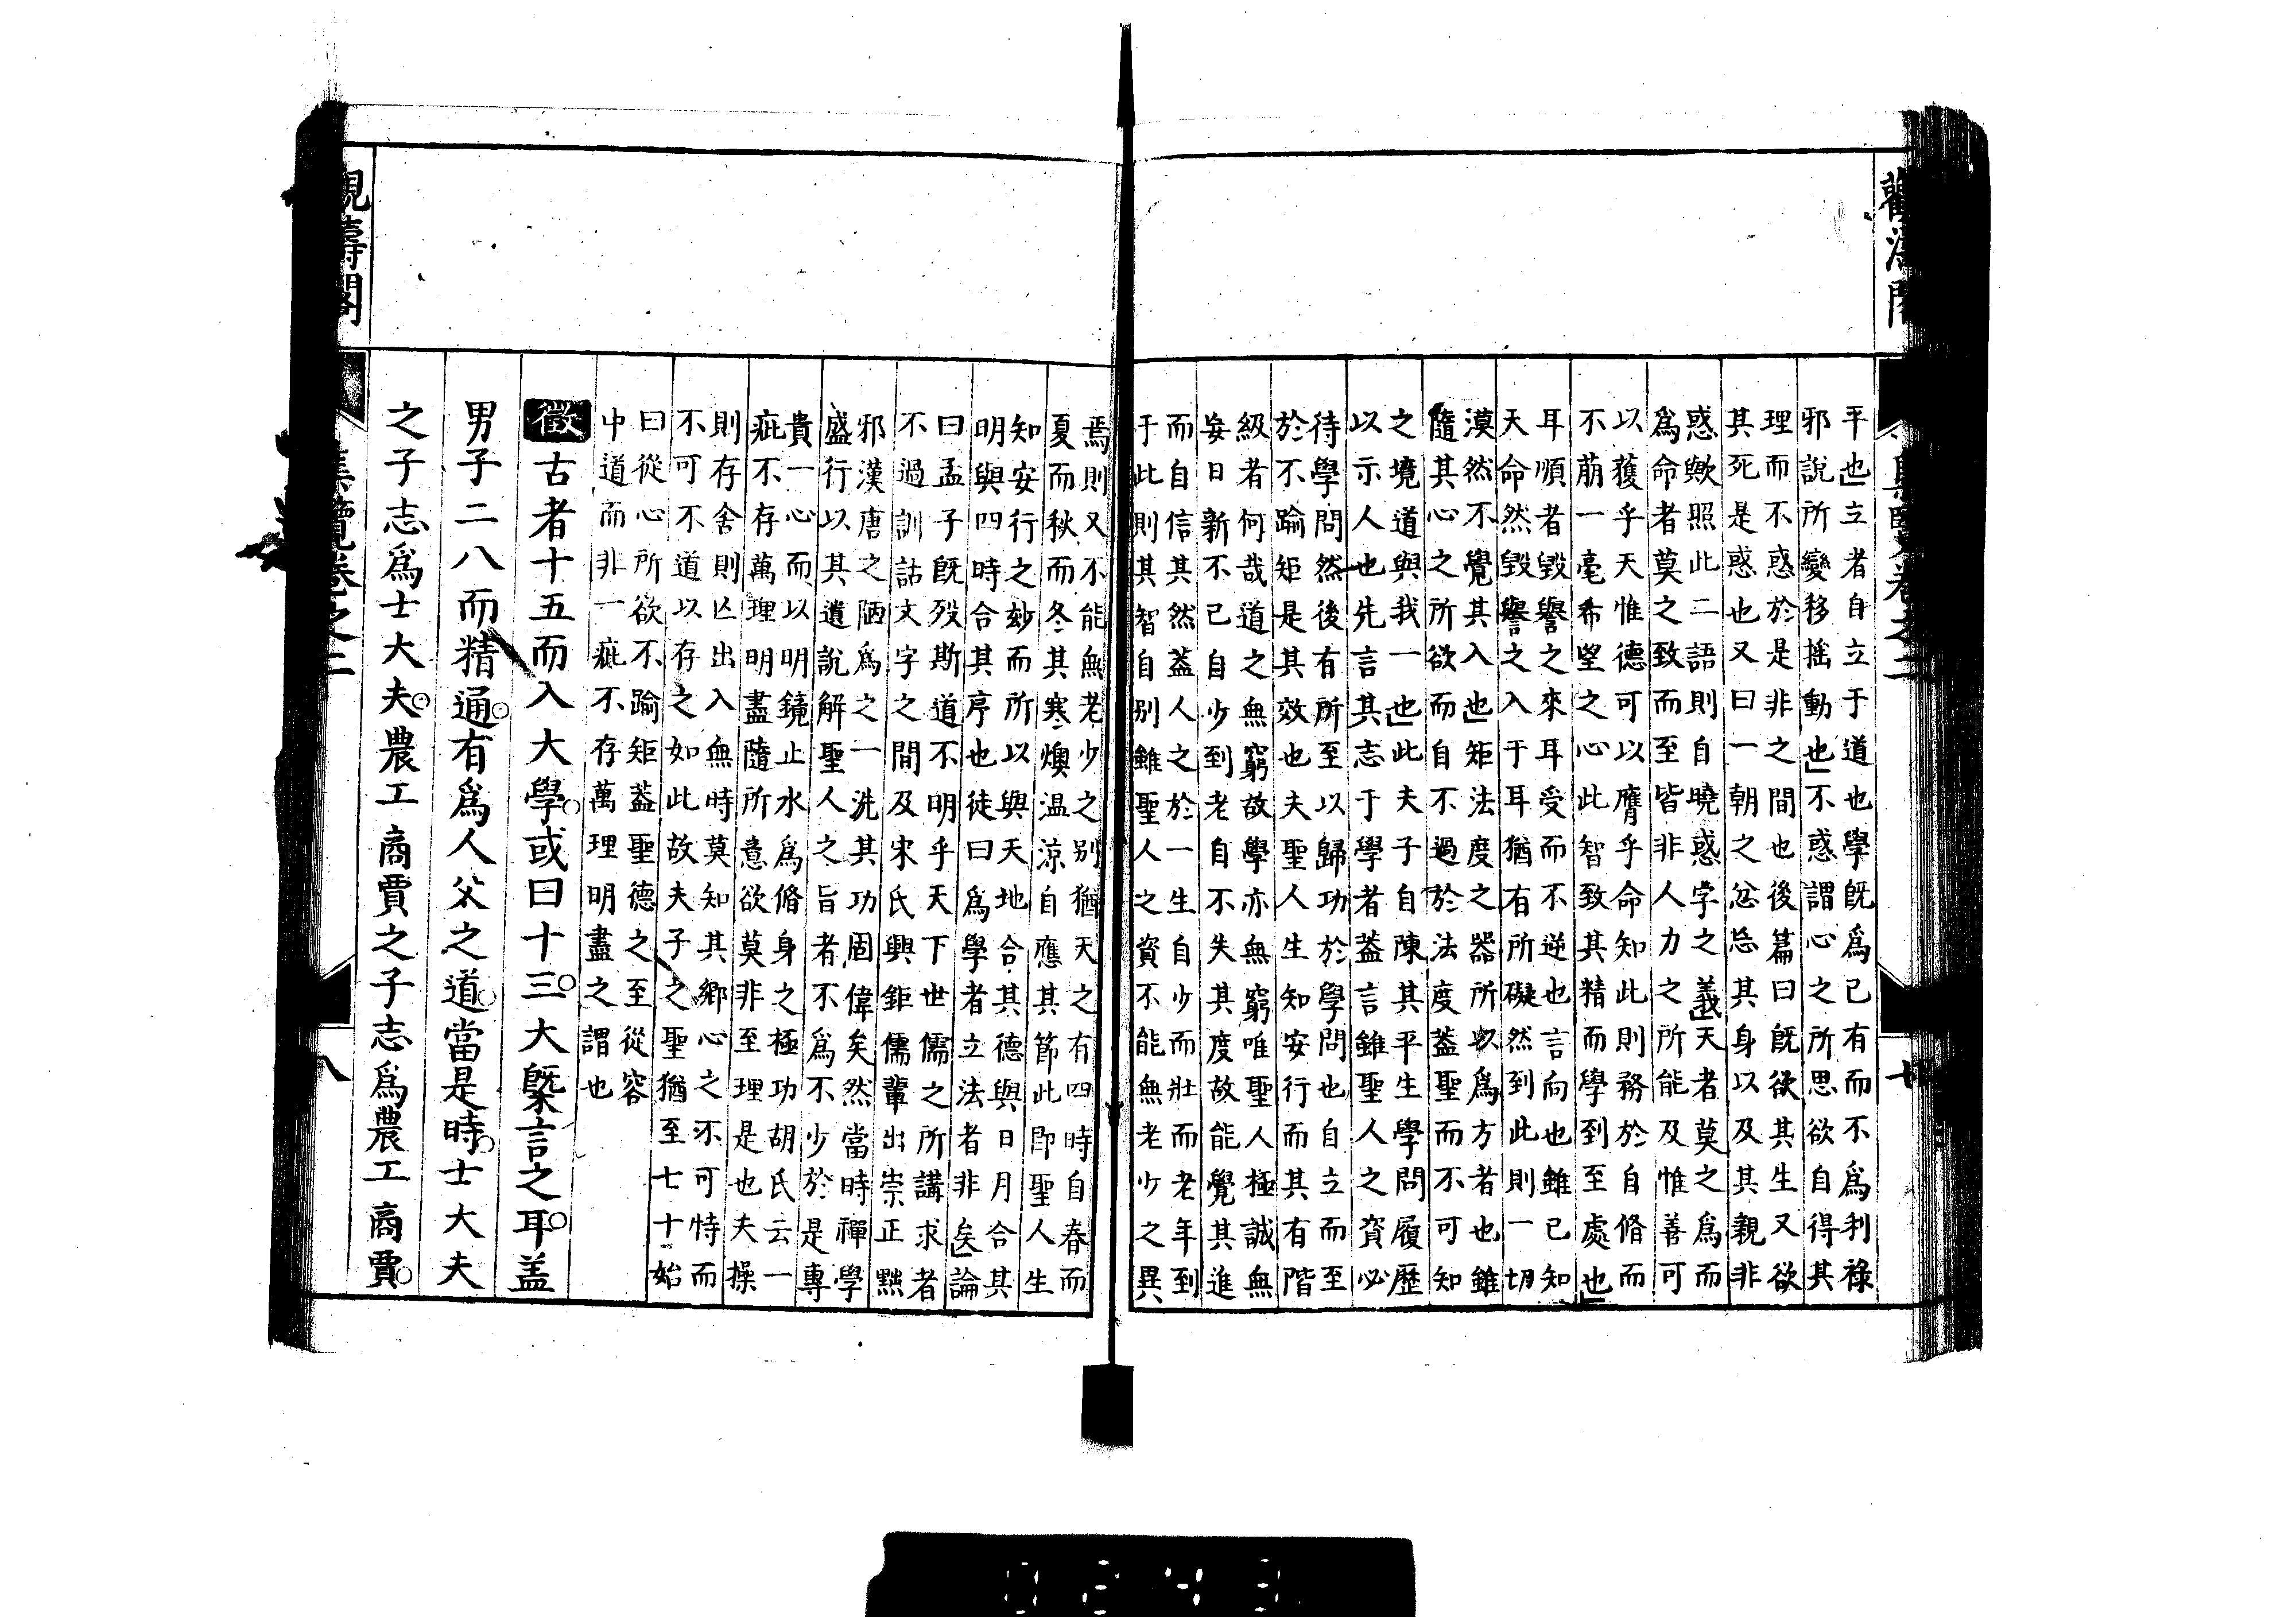 平也」立者自立于道也學既爲已有而不爲利祿
邪說所變移搖動也」不惑謂心之所思欲自得其
理而不惑於是非之間也後篇曰既欲其生又欲
其死是惑也又曰一朝之忿忘其身以及其親非
惑歟照此二語則自曉惑字之義」天者莫之爲而
爲命者莫之致而至皆非人力之所能及惟善可
以獲乎天惟德可以膺乎命知此則務於自脩而
不萠一毫希望之心此智致其精而學到至處也」
耳順者毀譽之來耳受而不逆也言向也雖已知
天命然毀譽之入于耳猶有所礙然到此則一切
漠然不覺其入也」矩法度之器所以爲方者也雖
隨其心之所欲而自不過於法度蓋聖而不可知
之境道與我一也」此夫子自陳其平生學問履歷
以示人也先言其志于學者蓋言雖聖人之資必
待學問然後有所至以歸功於學問也自立而至
於不踰矩是其效也夫聖人生知安行而其有階
級者何哉道之無窮故學亦無窮唯聖人極誠無
妄日新不已自少到老自不失其度故能覺其進
而自信其然蓋人之於一生自少而壯而老年到
于此則其智自別雖聖人之資不能無老少之異
焉則又不能無老少之別猶天之有四時自春而
夏而秋而冬其寒燠温涼自應其節此即聖人生
知安行之妙而所以與天地合其德與日月合其
明與四時合其序也徒曰爲學者立法者非矣」論
曰孟子既歿斯道不明乎天下世儒之所講求者
不過訓詁文字之間及宋氏興鉅儒輩出崇正黜
邪漢唐之陋爲之一洗其功固偉矣然當時禪學
盛行以其遺說解聖人之旨者不爲不少於是專
貴一心而以明鏡止水爲脩身之極功胡氏云一
疵不存萬理明盡隨所意欲莫非至理是也夫操
則存舍則亾出入無時莫知其鄉心之不可恃而
不可不道以存之如此故夫子之聖猶至七十始
曰從心所欲不踰矩蓋聖德之至從容
中道而非一疵不存萬理明盡之謂也
徵古者十五而入大學或曰十三大槩言之耳盖
男子二八而精通有爲人父之道當是時士大夫
之子志爲士大夫農工商賈之子志爲農工商賈
集覽卷之二
八
0243